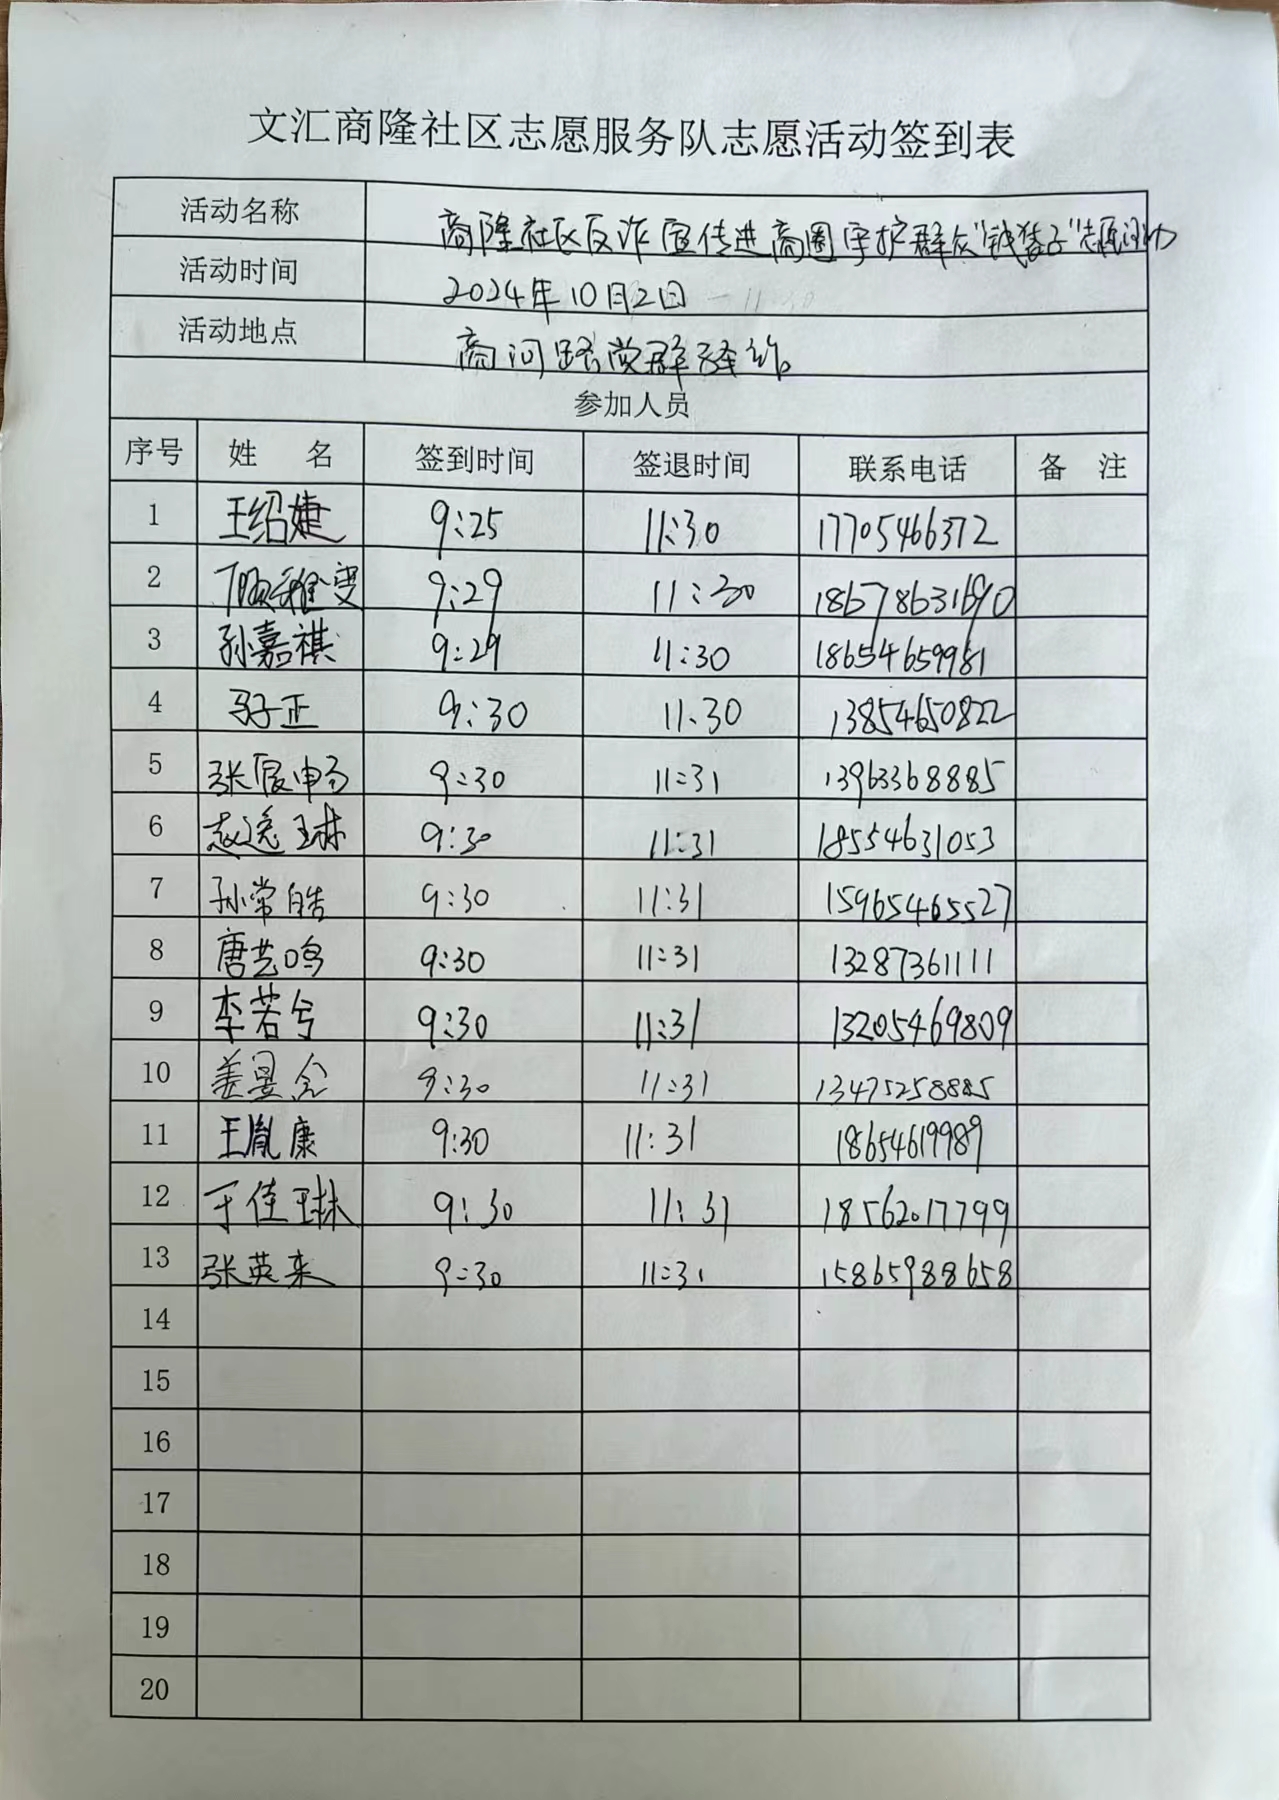 文汇商隆社区志愿服务队志愿活动签到表
活动名称 商隆社区反诈宣传进商圈守护群众"钱袋子"志愿活动
活动时间 2024年10月2日
活动地点 商河路党群驿站
参加人员
序号 姓 名 签到时间 签退时间 联系电话 备 注
1 王绍婕 9:25 11:30 17705466372
2 顾雅雯 9:29 11:30
3 孙嘉祺 9:29 11:30 18654659981
4 马子正 9:30 11:30 13854650822
5 张 9:30 11:31 13963368885
6 赵逸琳 9:30 11:31 18554631053
7 孙常皓 9:30 11:31 15965465527
8 唐艺鸣 9:30 11:31 13287361111
9 李若兮 9:30 11:31 13205469809
10 姜昱含 9:30 11:31 13475258885
11 王胤康 9:30 11:31 18654619989
12 于佳琳 9:30 11:31 18562017799
13 张英来 9:30 11:31 15865988658
14
15
16
17
18
19
20